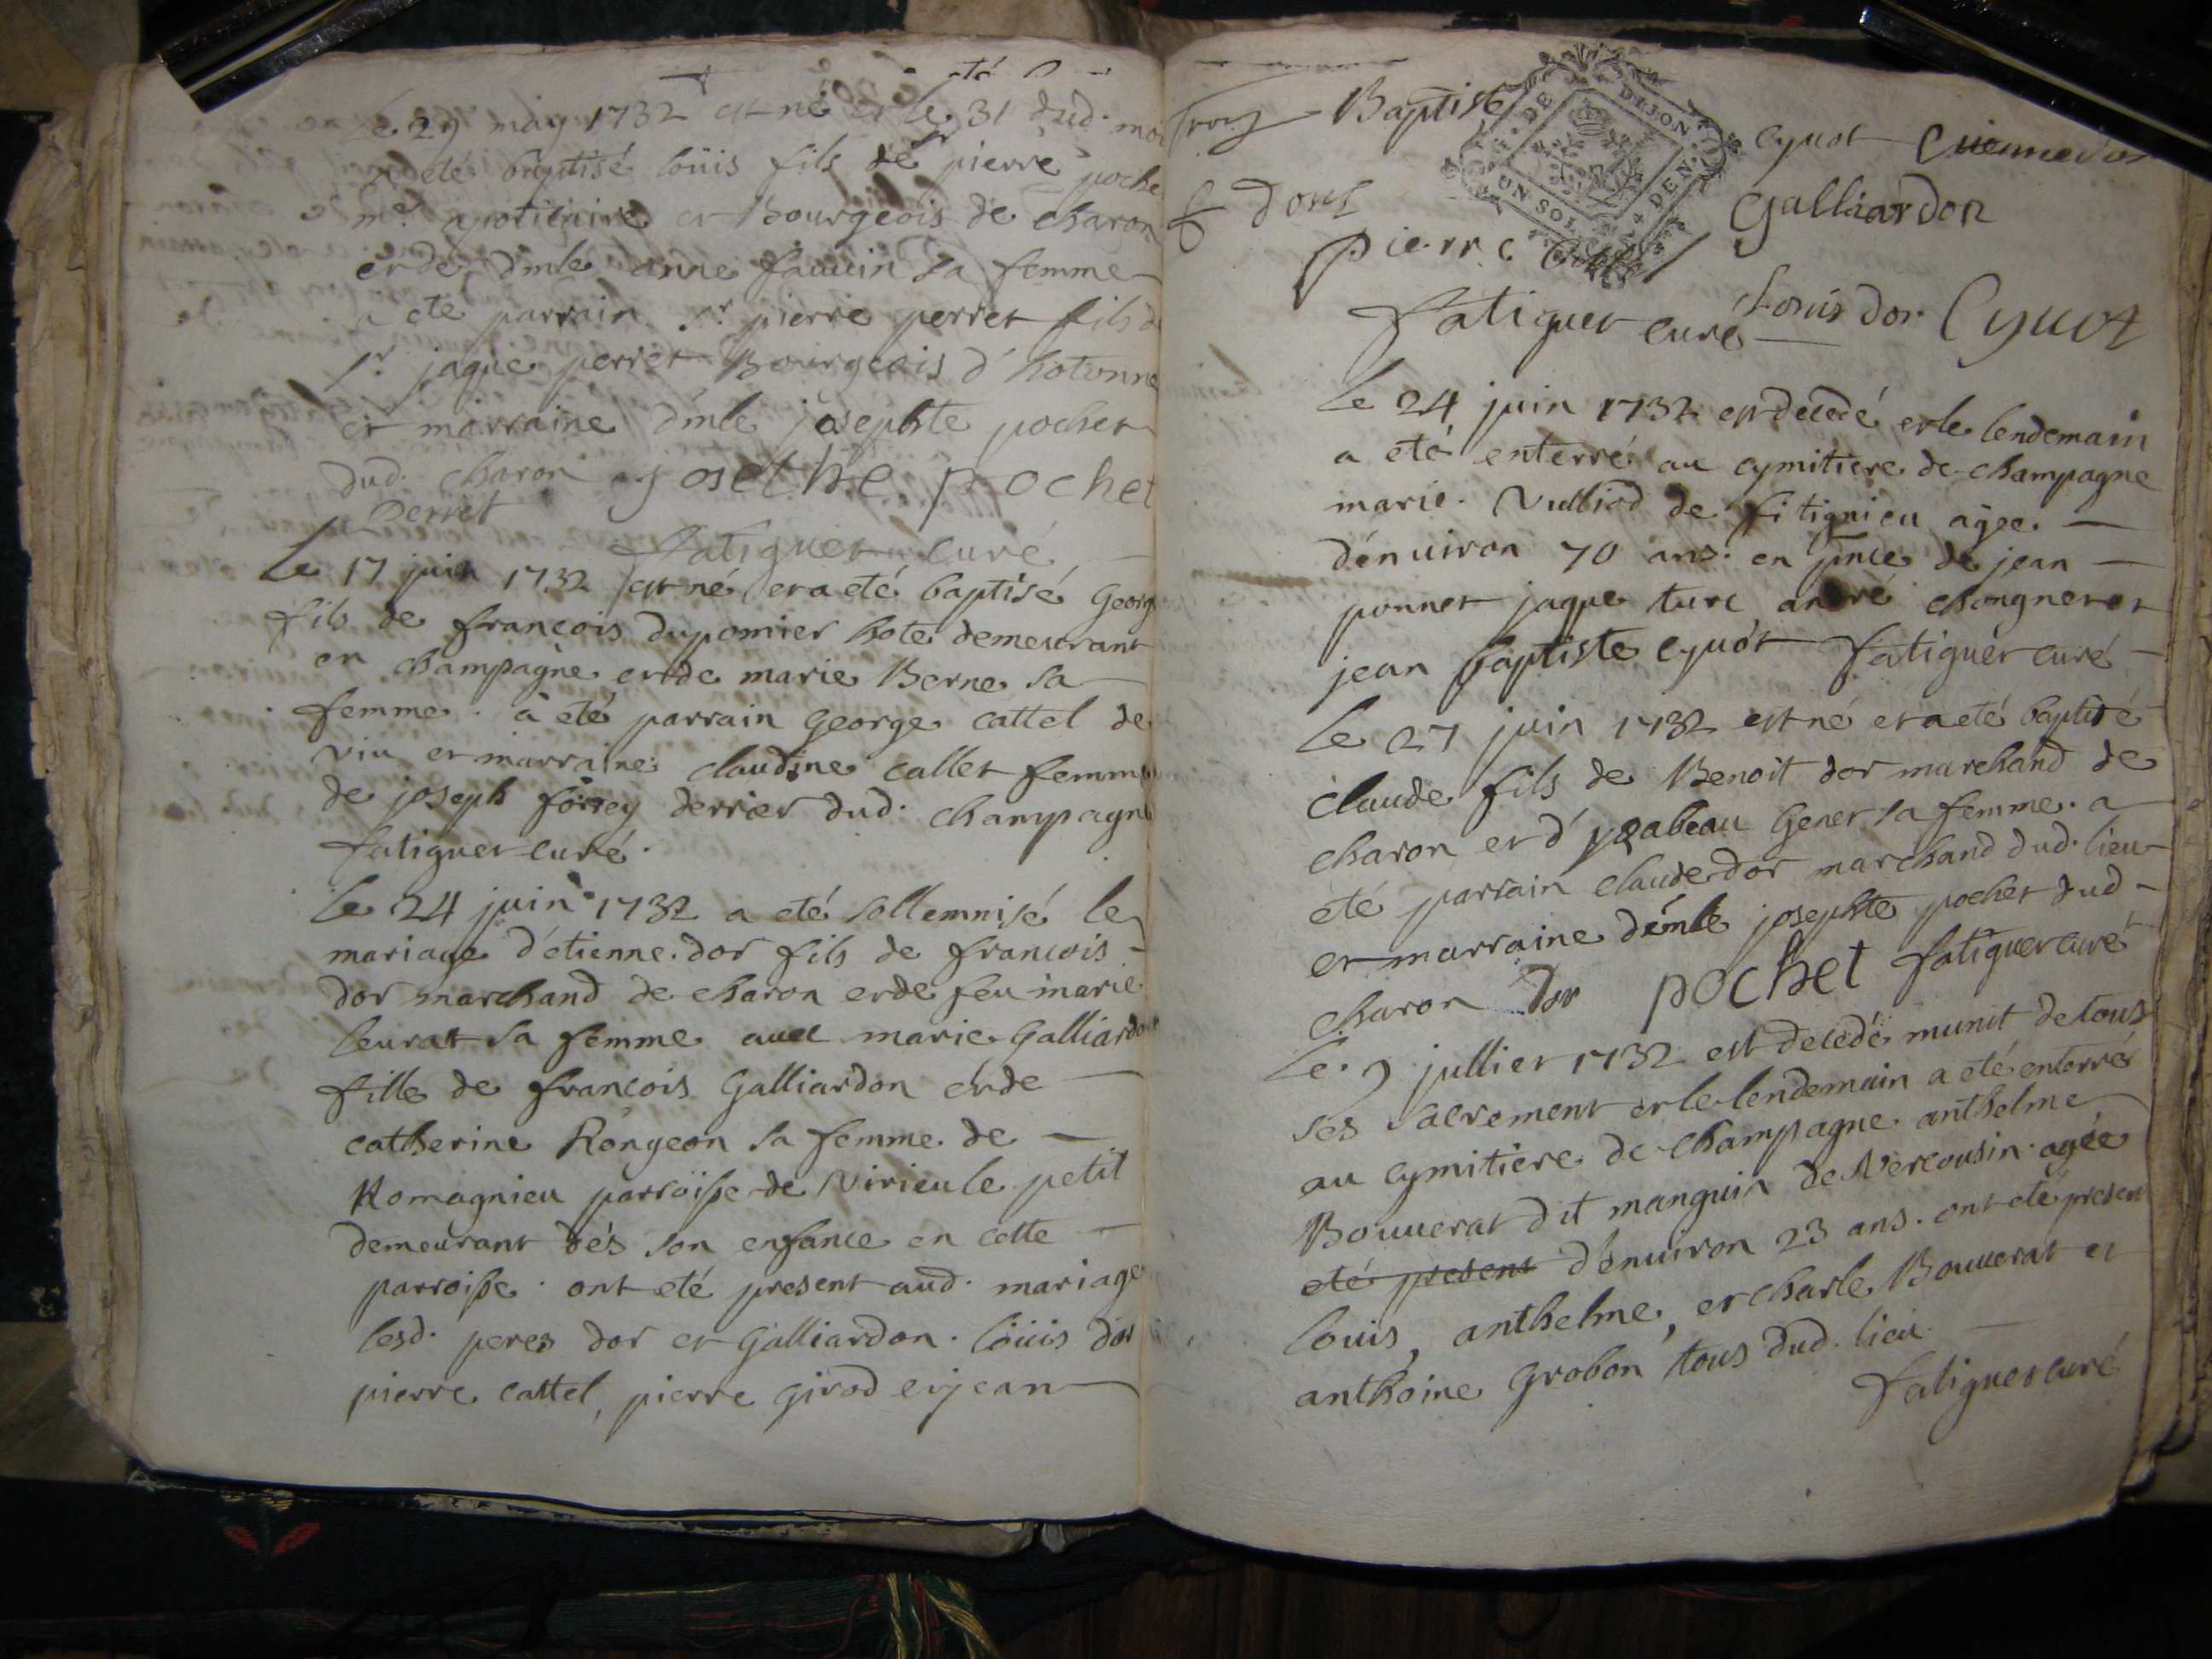 Le 29 may 1732 est né et le 31 dud. moi
a eté baptisé loüis fils de sr pierre poche
me. apoticaire et Bourgeois de charon
et de dmle anne fauuin sa femme
a eté parrain sr. pierre perret fils d
sr. jaque perret Bourgeois d'hotonne
et marraine dmle josephte pochet
dud. charon josethe pochet
Perret
fatiguet curé
Le 17 juin 1732 est né et a eté baptisé Georg
fils de francois dupomier hote demeurant
en champagne et de marie Berne sa
femme. à eté parrain George cattel de
viu et marraine claudine callet femme
de joseph forrey derrier dud. champagne
fatiguet curé.
Le 24 juin 1732 a eté sollemnisé le
mariage d'étienne dor fils de francois
dor marchand de charon et de feu marie
leurat sa femme avec marie Galliardon
fille de francois Galliardon et de
catherine Rongeon sa femme de
Romagnieu parroisse de virieu le petit
demeurant dés son enfance en cette
parroisse. ont eté present aud. mariage
lesd. peres dor et Galliardon. loüis dor
pierre cattel, pierre girod et jean
Baptiste cyuot
DE DIJON
UN SOL 4 DEN
Galliardon
pierre
Louis dor Cyuot
fatiguet curé
Le 24 juin 1732 est decedé et le lendemain
a eté enterré au cymitiere de champagne
marie Vulliod de fitignieu agée
d'enuiron 70 ans. en pnce de jean
ponnet jaque turc andré chongnet et
jean baptiste cyuot fatiguet curé
Le 27 juin 1732 est né et a eté baptisé
claude fils de Benoit dor marchand de
charon et d'ysabeau Genet sa femme. a
eté parrain claude dor marchand dud. lieu
et marraine demle josephte pochet dud
charon Dor pochet fatiguet curé
Le 9 jullier 1732 est decedé munit de tous
ses sacrement et le lendemain a eté enterré
au cymitiere de champagne anthelme
Bouuerat dit manguin de Vercousin. agée
eté present d'enuiron 23 ans. ont eté present
louis, anthelme, et charle Bouuerat et
anthoine Grobon tous dud. lieu
fatiguet curé